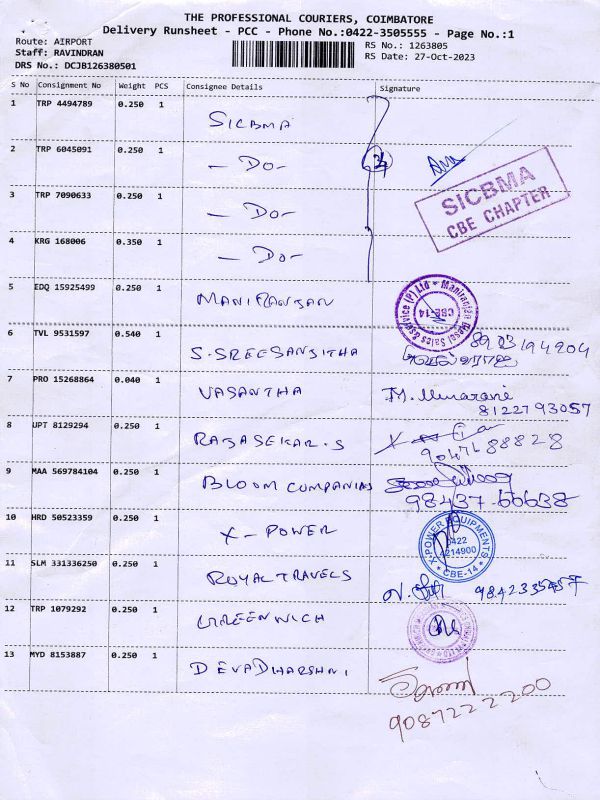 THE PROFESSIONAL COURIERS, COIMBATORE
Delivery Runsheet - PCC - Phone No.:0422-3505555 - Page No.:1
Route: AIRPORT
Staff: RAVINDRAN
DRS No.: DCJB126380501
RS No.: 1263805
RS Date: 27-Oct-2023
S No Consignment No Weight PCS Consignee Details Signature
1 TRP 4494789 0.250 1 SICBMA
2 TRP 6045091 0.250 1 - DO-
3 TRP 7090633 0.250 1 - DO-
SICBMA
CBE CHAPTER
4 KRG 168006 0.350 1 - DO-
5 EDQ 15925499 0.250 1 MANIRANJAN
CBE-14
6 TVL 9531597 0.540 1 S.SREESANJITHA
7 PRO 15268864 0.040 1 VASANTHA
8122793057
8 UPT 8129294 0.250 1 RAJASEKAR.S
9047688828
9 MAA 569784104 0.250 1 BLOOM COMPANIAS
98437-66638
10 HRD 50523359 0.250 1 X-POWER
X-POWER EQUIPMENTS
0422
4214900
CBE-14
11 SLM 331336250 0.250 1 ROYAL TRAVELS
12 TRP 1079292 0.250 1 GREENWICH
13 MYD 8153887 0.250 1 DEVADHARSHNI
9087222200